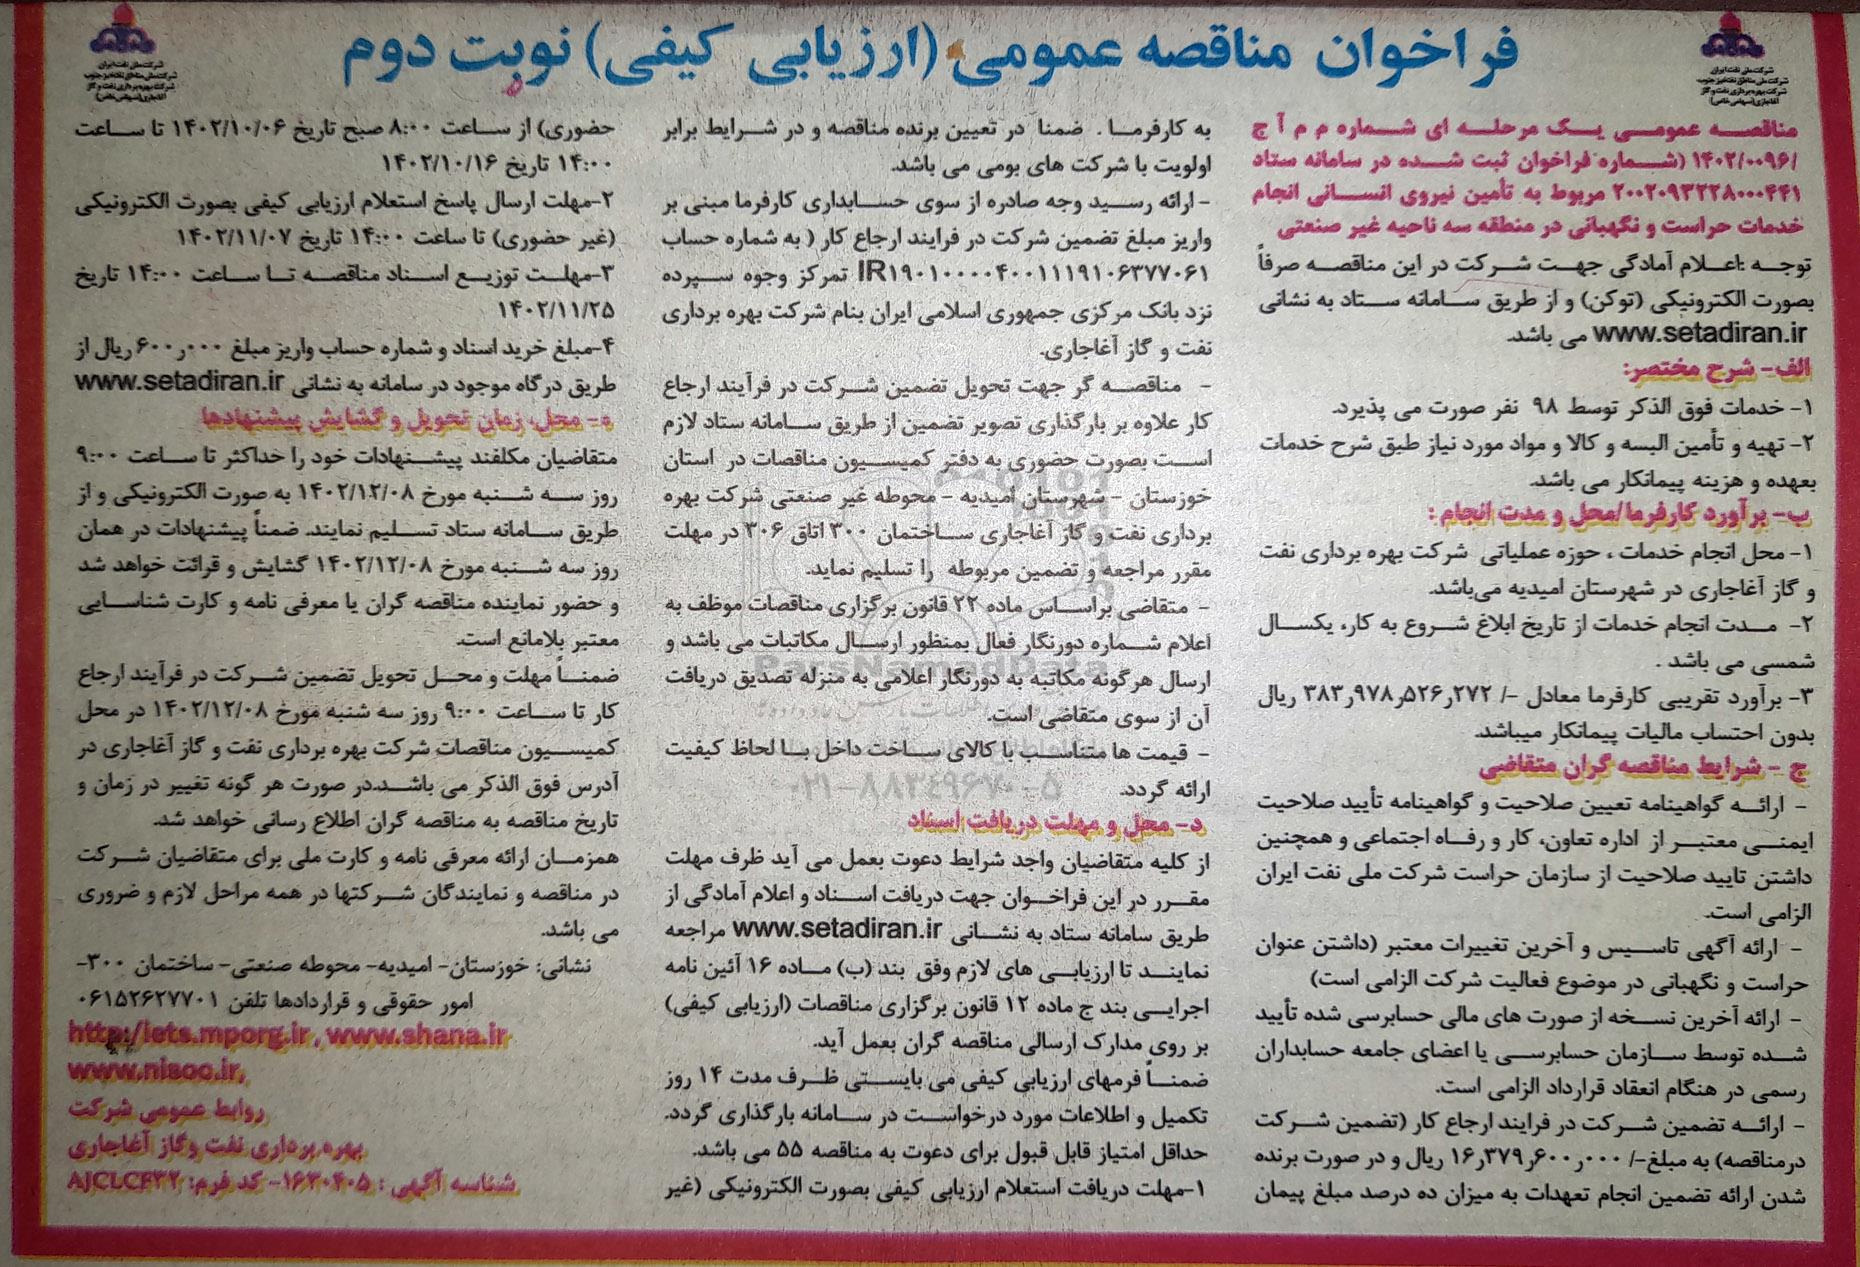 فراخوان مناقصه عمومی (ارزیابی کیفی) نوبت دوم
شرکت ملی نفت ایران
شرکت ملی مناطق نفتخیز جنوب
شرکت بهره برداری نفت و گاز
آغاجاری (سهامی خاص)
شرکت ملی نفت ایران
شرکت ملی مناطق نفتخیز جنوب
شرکت بهره برداری نفت و گاز
آغاجاری (سهامی خاص)
مناقصه عمومی یک مرحله ای شماره م م آ ج
/۱۴۰۲/۰۰۹۶ (شماره فراخوان ثبت شده در سامانه ستاد
۲۰۰۲۰۹۳۲۲۸۰۰۰۴۴۱ مربوط به تأمین نیروی انسانی انجام
خدمات حراست و نگهبانی در منطقه سه ناحیه غیر صنعتی
توجه :اعلام آمادگی جهت شرکت در این مناقصه صرفاً
بصورت الکترونیکی (توکن) و از طریق سامانه ستاد به نشانی
www.setadiran.ir می باشد.
الف- شرح مختصر:
۱- خدمات فوق الذکر توسط ۹۸ نفر صورت می پذیرد.
۲- تهیه و تأمین البسه و کالا و مواد مورد نیاز طبق شرح خدمات
بعهده و هزینه پیمانکار می باشد.
ب- برآورد کارفرما/محل و مدت انجام :
۱- محل انجام خدمات ، حوزه عملیاتی شرکت بهره برداری نفت
و گاز آغاجاری در شهرستان امیدیه می‌باشد.
۲- مدت انجام خدمات از تاریخ ابلاغ شروع به کار، یکسال
شمسی می باشد .
۳- برآورد تقریبی کارفرما معادل -/ ۳۸۳٫۹۷۸٫۵۲۶٫۲۷۲ ریال
بدون احتساب مالیات پیمانکار میباشد.
ج - شرایط مناقصه گران متقاضی
- ارائه گواهینامه تعیین صلاحیت و گواهینامه تأیید صلاحیت
ایمنی معتبر از اداره تعاون، کار و رفاه اجتماعی و همچنین
داشتن تایید صلاحیت از سازمان حراست شرکت ملی نفت ایران
الزامی است.
- ارائه آگهی تاسیس و آخرین تغییرات معتبر (داشتن عنوان
حراست و نگهبانی در موضوع فعالیت شرکت الزامی است)
- ارائه آخرین نسخه از صورت های مالی حسابرسی شده تأیید
شده توسط سازمان حسابرسی یا اعضای جامعه حسابداران
رسمی در هنگام انعقاد قرارداد الزامی است.
- ارائه تضمین شرکت در فرایند ارجاع کار (تضمین شرکت
درمناقصه) به مبلغ-/ ۱۶٫۳۷۹٫۶۰۰٫۰۰۰ ریال و در صورت برنده
شدن ارائه تضمین انجام تعهدات به میزان ده درصد مبلغ پیمان
به کارفرما . ضمنا در تعیین برنده مناقصه و در شرایط برابر
اولویت با شرکت های بومی می باشد.
- ارائه رسید وجه صادره از سوی حسابداری کارفرما مبنی بر
واریز مبلغ تضمین شرکت در فرایند ارجاع کار ( به شماره حساب
IR۱۹۰۱۰۰۰۰۴۰۰۱۱۱۹۱۰۶۳۷۷۰۶۱ تمرکز وجوه سپرده
نزد بانک مرکزی جمهوری اسلامی ایران بنام شرکت بهره برداری
نفت و گاز آغاجاری.
- مناقصه گر جهت تحویل تضمین شرکت در فرآیند ارجاع
کار علاوه بر بارگذاری تصویر تضمین از طریق سامانه ستاد لازم
است بصورت حضوری به دفتر کمیسیون مناقصات در استان
خوزستان - شهرستان امیدیه - محوطه غیر صنعتی شرکت بهره
برداری نفت و گاز آغاجاری ساختمان ۳۰۰ اتاق ۳۰۶ در مهلت
مقرر مراجعه و تضمین مربوطه را تسلیم نماید.
- متقاضی براساس ماده ۲۲ قانون برگزاری مناقصات موظف به
اعلام شماره دورنگار فعال بمنظور ارسال مکاتبات می باشد و
ارسال هرگونه مکاتبه به دورنگار اعلامی به منزله تصدیق دریافت
آن از سوی متقاضی است.
- قیمت ها متناسب با کالای ساخت داخل با لحاظ کیفیت
ارائه گردد.
ParsNamadData
۰۲۱-۸۸۳۴۹۶۷۰-۵
د- محل و مهلت دریافت اسناد
از کلیه متقاضیان واجد شرایط دعوت بعمل می آید ظرف مهلت
مقرر در این فراخوان جهت دریافت اسناد و اعلام آمادگی از
طریق سامانه ستاد به نشانی www.setadiran.ir مراجعه
نمایند تا ارزیابی های لازم وفق بند (ب) ماده ۱۶ آئین نامه
اجرایی بند ج ماده ۱۲ قانون برگزاری مناقصات (ارزیابی کیفی)
بر روی مدارک ارسالی مناقصه گران بعمل آید.
ضمناً فرمهای ارزیابی کیفی می بایستی ظرف مدت ۱۴ روز
تکمیل و اطلاعات مورد درخواست در سامانه بارگذاری گردد.
حداقل امتیاز قابل قبول برای دعوت به مناقصه ۵۵ می باشد.
۱-مهلت دریافت استعلام ارزیابی کیفی بصورت الکترونیکی (غیر
حضوری) از ساعت ۸:۰۰ صبح تاریخ ۱۴۰۲/۱۰/۰۶ تا ساعت
۱۴:۰۰ تاریخ ۱۴۰۲/۱۰/۱۶
۲-مهلت ارسال پاسخ استعلام ارزیابی کیفی بصورت الکترونیکی
(غیر حضوری) تا ساعت ۱۴:۰۰ تاریخ ۱۴۰۲/۱۱/۰۷
۳-مهلت توزیع اسناد مناقصه تا ساعت ۱۴:۰۰ تاریخ
۱۴۰۲/۱۱/۲۵
۴-مبلغ خرید اسناد و شماره حساب واریز مبلغ ۶۰۰٫۰۰۰ ریال از
طریق درگاه موجود در سامانه به نشانی www.setadiran.ir
ه- محل، زمان تحویل و گشایش پیشنهادها
متقاضیان مکلفند پیشنهادات خود را حداکثر تا ساعت ۹:۰۰
روز سه شنبه مورخ ۱۴۰۲/۱۲/۰۸ به صورت الکترونیکی و از
طریق سامانه ستاد تسلیم نمایند. ضمناً پیشنهادات در همان
روز سه شنبه مورخ ۱۴۰۲/۱۲/۰۸ گشایش و قرائت خواهد شد
و حضور نماینده مناقصه گران یا معرفی نامه و کارت شناسایی
معتبر بلامانع است.
ضمناً مهلت و محل تحویل تضمین شرکت در فرآیند ارجاع
کار تا ساعت ۹:۰۰ روز سه شنبه مورخ ۱۴۰۲/۱۲/۰۸ در محل
کمیسیون مناقصات شرکت بهره برداری نفت و گاز آغاجاری در
آدرس فوق الذکر می باشد.در صورت هر گونه تغییر در زمان و
تاریخ مناقصه به مناقصه گران اطلاع رسانی خواهد شد.
همزمان ارائه معرفی نامه و کارت ملی برای متقاضیان شرکت
در مناقصه و نمایندگان شرکتها در همه مراحل لازم و ضروری
می باشد.
نشانی: خوزستان- امیدیه- محوطه صنعتی- ساختمان ۳۰۰-
امور حقوقی و قراردادها تلفن ۰۶۱۵۲۶۲۷۷۰۱
http:/iets.mporg.ir , www.shana.ir
www.nisoc.ir,
روابط عمومی شرکت
بهره برداری نفت وگاز آغاجاری
شناسه آگهی : ۱۶۳۰۴۰۵- کد فرم: AJCLCF۳۲